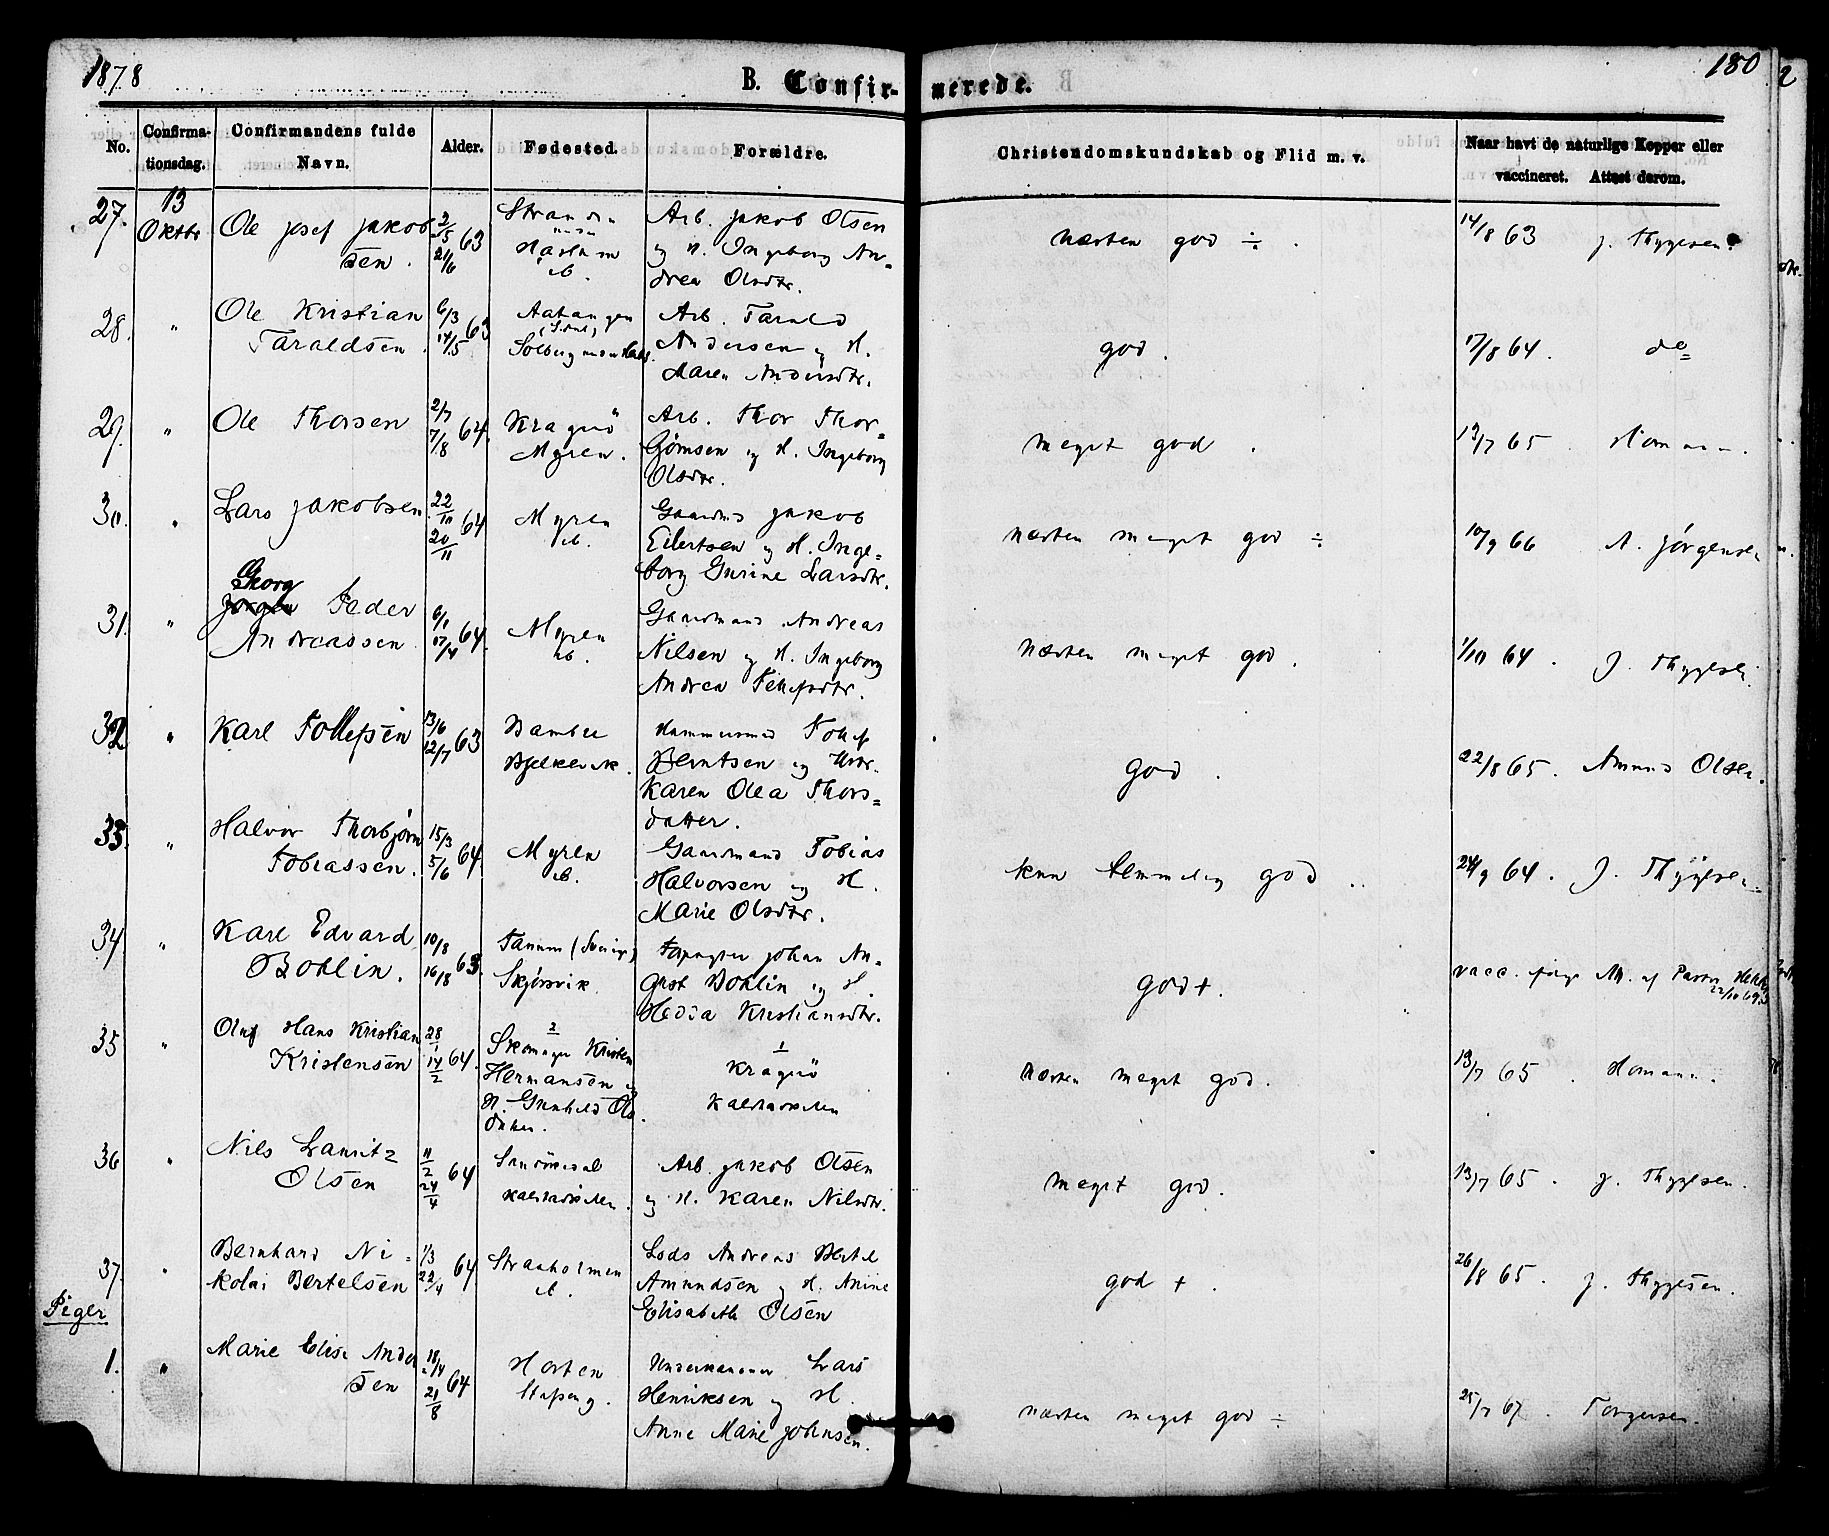 1878
B. Confir-
merede.
180
No.
Confirma-
tionsdag.
Confirmandens fulde
Navn.
Alder.
Fødested.
Forældre.
Christendomskundskab og Flid m. v.
Naar havt de naturlige Kopper eller
vaccineret. Attest derom.
27. 13
Oktbr Ole Josef Jakob
sen.
21/6 63
Arb. Jakob Olsen
og H. Ingeborg An=
drea Olsdtr.
næsten god ÷.
14/8 63 J. Thygesen.
28. " Ole Kristian
Taraldsen.
6/3
14/5 63
Arb. Tarald
Andersen og H.
Maren Andersdtr.
god.
17/8 64. do
29. " Ole Thorsen
2/7
7/8 64.
Kragerö
Myren.
Arb. Thor Thor=
Gjømsen og H. Ingeborg
Olsdtr.
meget god.
13/7 65. Homann.
30. " Lars Jakobsen
22/10
20/11 64
Myren
ib.
Gaardmd Jakob
Eilertsen og H. Inge=
borg Gurine Larsdtr.
næsten meget god ÷
10/9 66 A. Jörgensen
31. " Georg
Jørgen Peder
Andreassen.
6/1
17/4 64.
Myren
ib.
Gaardmand Andreas
Nilsen og H. Ingeborg
Andrea Tellefsdtr.
næsten meget god.
1/10 64. J. Thygesen.
32 " Karl Tollefsen
13/6
12/7 63
Bamble
Hammersmed Tollef
Berntsen og Hstr.
Karen Olea Thors=
datter.
god.
22/8 65. Amund Olsen.
33. " Halvor Thorbjørn
Tobiassen.
15/3
5/6 64.
Myren
ib.
Gaardmand Tobias
Halvorsen og H.
Marie Olsdtr.
kun temmelig god.
24/9 64. J. Thygesen.
34 " Karl Edvard
Bohlin.
10/8
16/8 63.
Tanum (Sverige)
Skjørsvik.
Johan Au=
gust Bohlin og H.
Hedda Kristiansdtr.
god +.
vacc. ifølge Att. af Pastor
22/10 69.
35 " Oluf Hans Kristian
Kristensen
28/1
14/2 64.
2
Skomager Kristen
Hermansen og
H. Gunhild Ols
datter.
1
Kragerö
Kalstadkilen
næsten meget god.
13/7 65. Homann.
36 " Nils Lauritz
Olsen
11/2
24/4 64
Sandökedal
Kalstadkilen.
Arb. Jakob Olsen
og H. Karen Nilsdtr.
meget god.
13/7 65. J. Thygesen.
37. " Bernhard Ni-
kolai Bertelsen
1/3
22/4 64
Straaholmen
ib.
Lods Andreas Bertel
Amundsen og H. Anine
Elisabeth Olsen
god +.
26/8 65. J. Thygesen.
Piger
1. " Marie Elise Ander
sen
18/4
21/8 64
Horten
Lars
Henriksen og H.
Anne Marie Johnsen.
næsten meget god ÷
25/7 67. Torgersen.